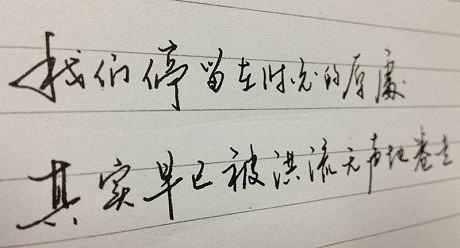 我们停留在时光的原處
其实早已被洪流无声地卷走